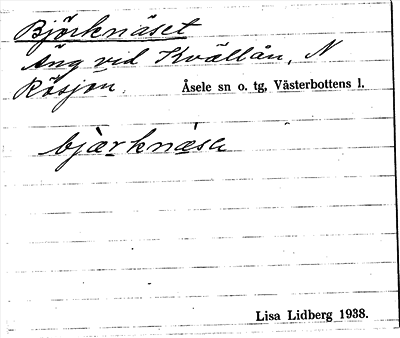 Björknäset
Äng vid Kvällån, N
Rösjön.
Åsele sn o. tg, Västerbottens l.
bjàrknàsa
Lisa Lidberg 1938.